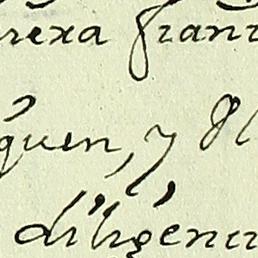 rexa fran
quen, y
diligenci